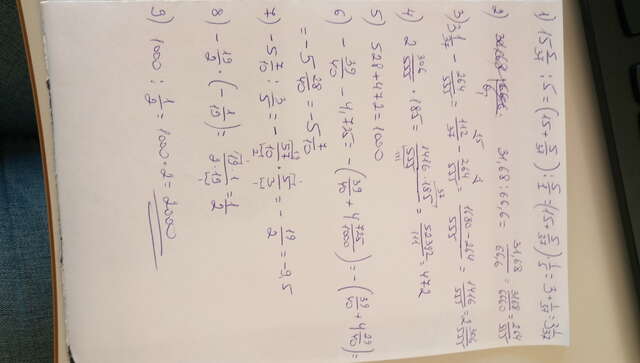 1) 15 5/37 : 5 = (15 + 5/37) : 5/1 = (15 5/37) 1/5 = 3 + 1/37 = 3 1/37
2) 31,68 : 6,66 = 31,68/66,6 = 3168/6660 = 264/555
3) 3 1/37 - 264/555 = 112/37 - 264/555 = 1680-264/555 = 1416/555 = 2 306/555
4) 2 306/555 · 185 = 1416·185/555 = 52392/111 = 472
5) 528 + 472 = 1000
6) - 39/40 - 4,725 = - (39/40 + 4 725/1000) = - (39/40 + 4 29/40) =
= -5 28/40 = -5 7/10
7) -5 7/10 : 3/5 = - 57/10 · 5/3 = - 19/2 = -9,5
8) - 19/2 · (- 1/19) = 19·1/2·19 = 1/2
9) 1000 : 1/2 = 1000 · 2 = 2000